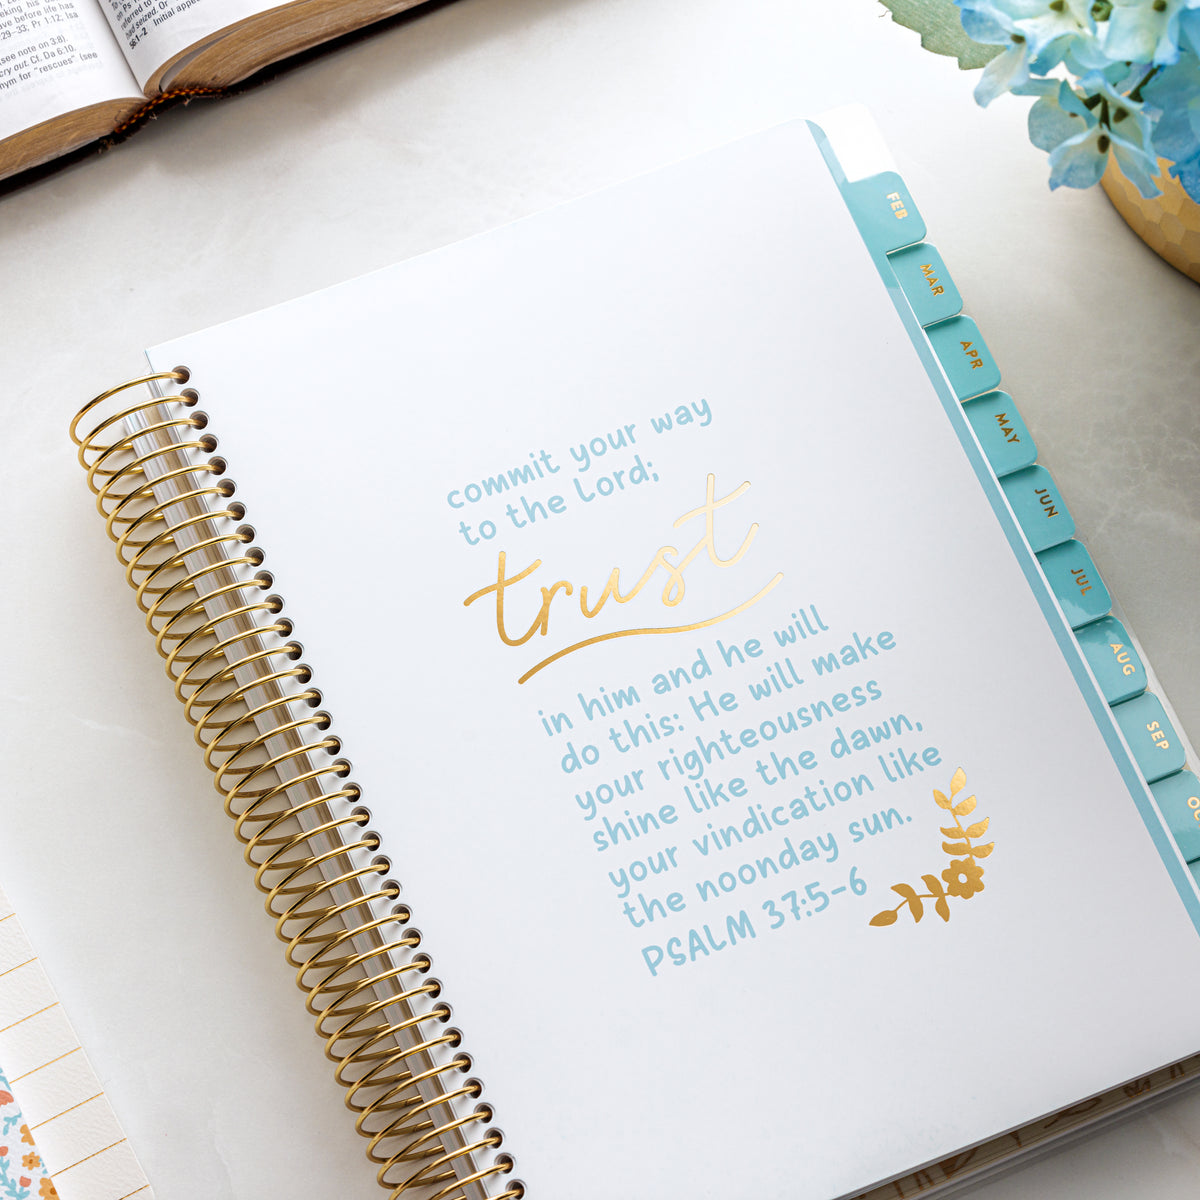 eking his
ave before life has
29–33; Pr 1:12; Isa
(see note on 3:8).
cry out. Cf. Da 6:10.
nym for "rescues" (see
on Ps
referred to
had seized. Or
56:1–2 Initial appeal
commit your way
to the Lord;
trust
in him and he will
do this: He will make
your righteousness
shine like the dawn,
your vindication like
the noonday sun.
PSALM 37:5-6
FEB
MAR
APR
MAY
JUN
JUL
AUG
SEP
OC